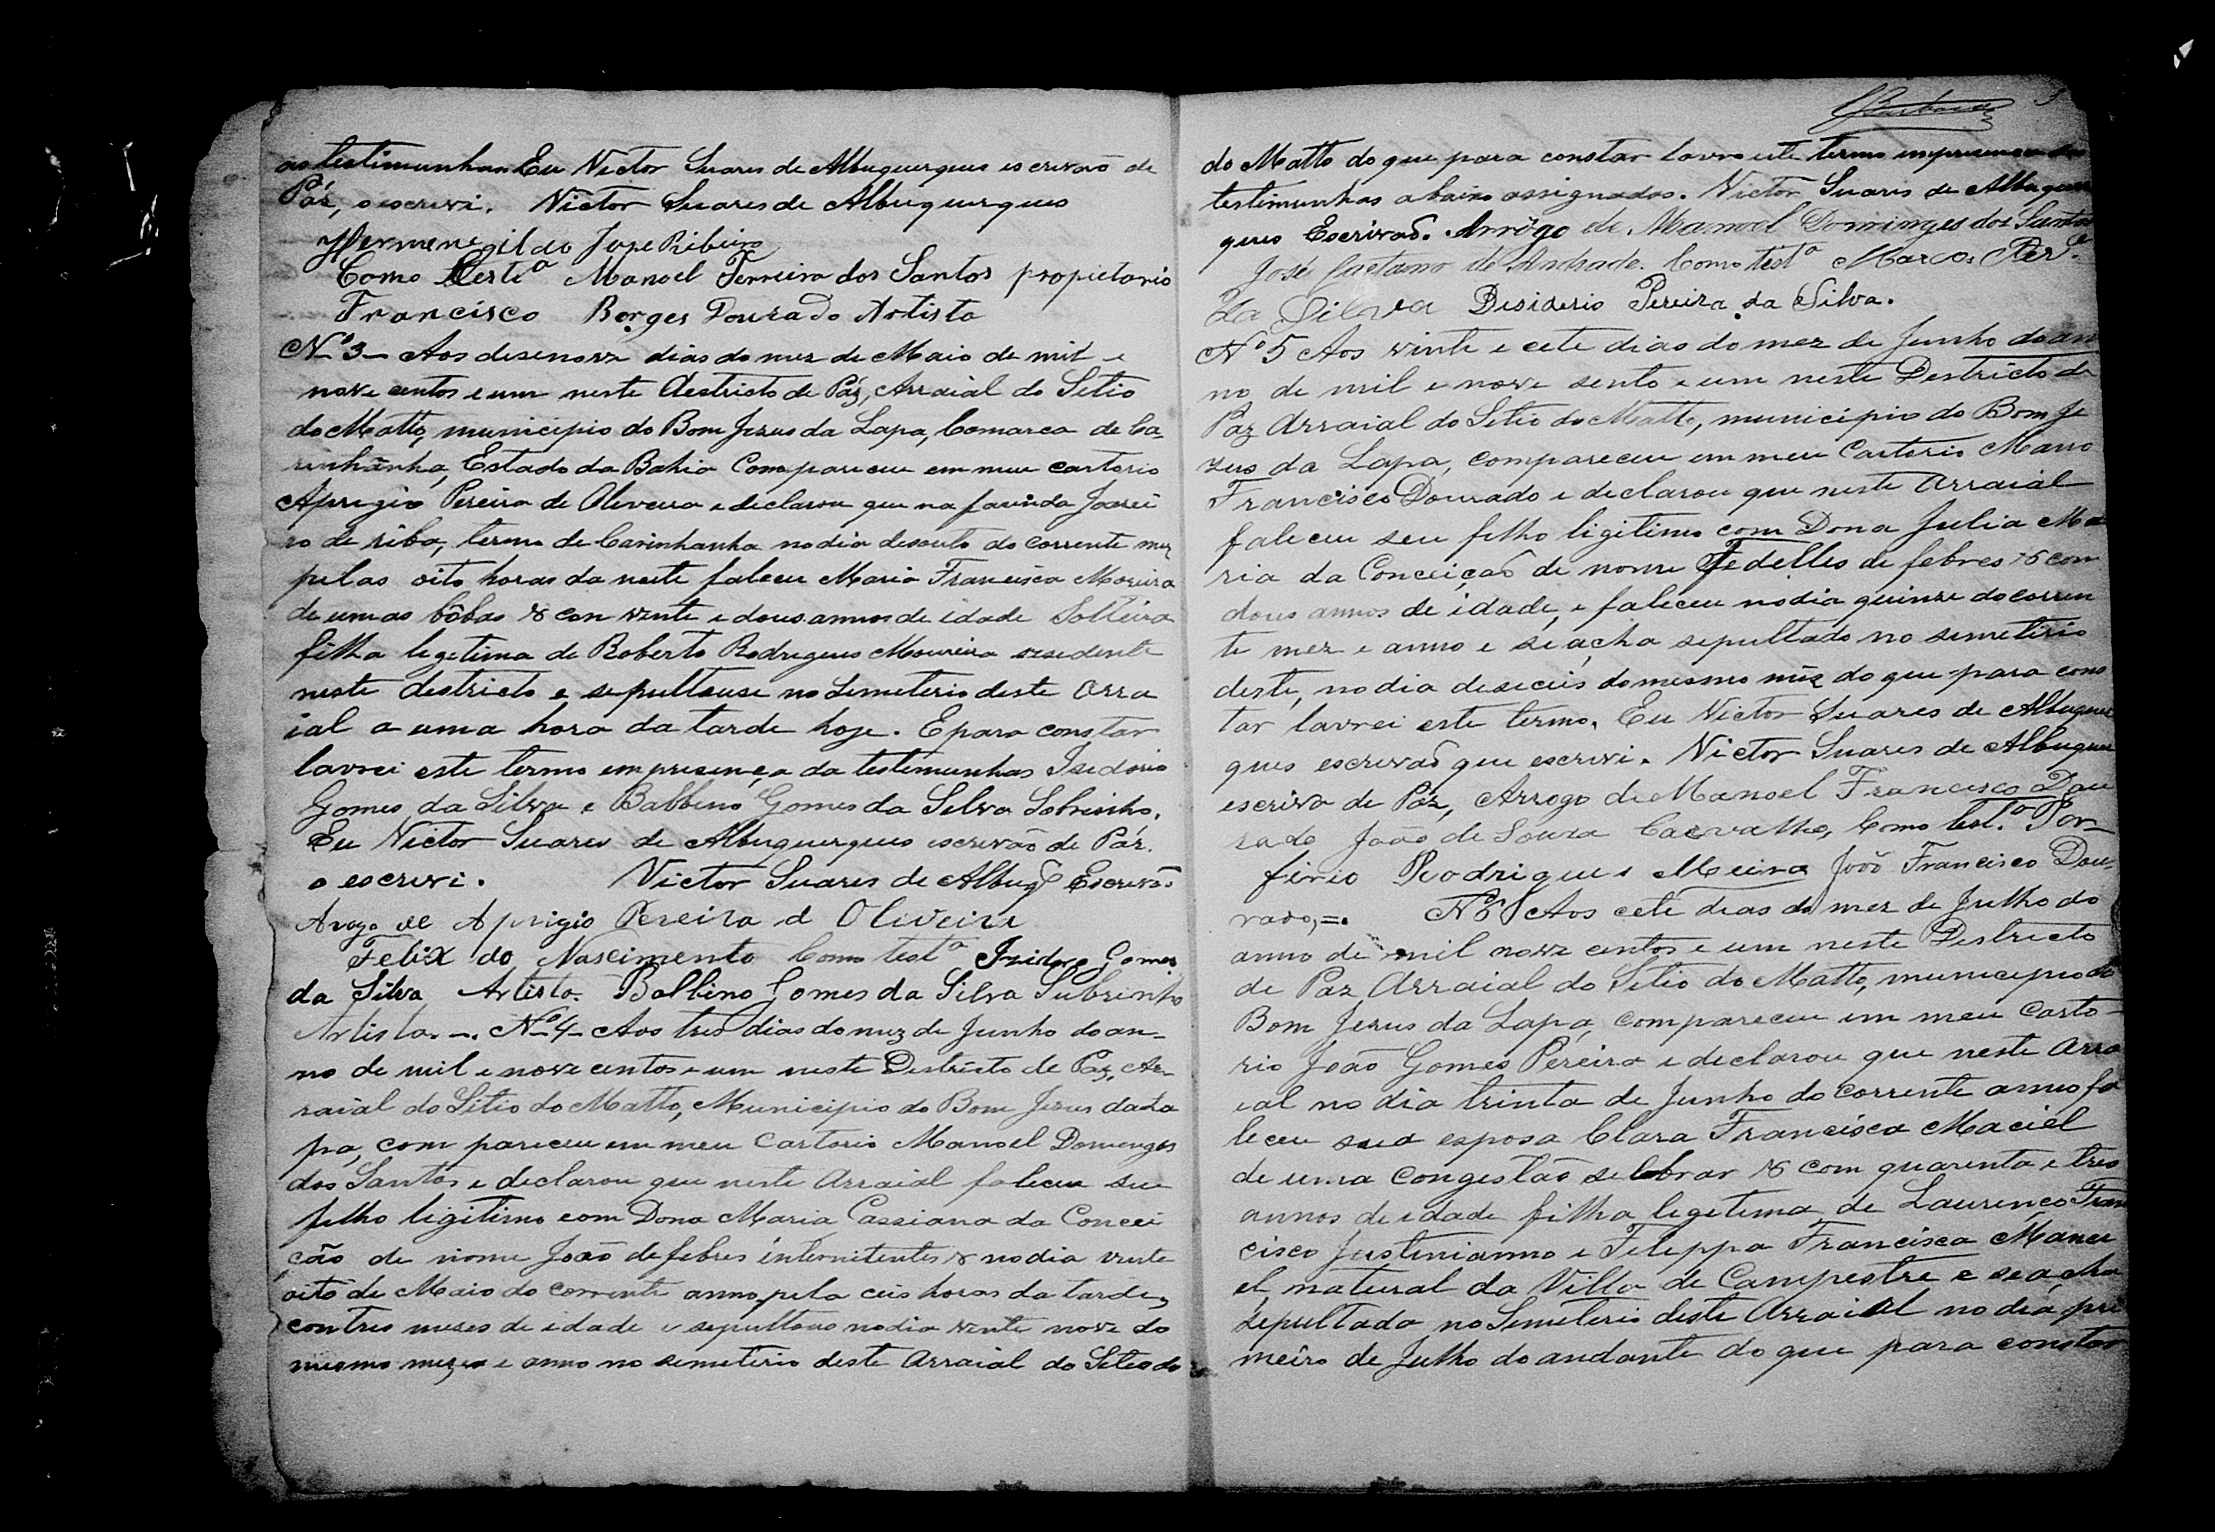 as testimunhas Eu Victor Suares de Albuquerques escrivão de
Páz, o escrevi. Victor Suares de Albuquerques
Hermenegildo Jose Ribeiro
Como Testª Manoel Ferreira dos Santos propietario
Francisco Borges Dourado Artista
Nº 3 - Aos desenove dias do mez de Maio de mil e
nove centos e um neste Destricto de Páz, Arraial do Setio
do Matto, municipio do Bom Jezus da Lapa, Comarca de Ca-
rinhanha, Estado da Bahia Compareceu em meu cartorio
Aprigio Pereira de Oliveira e declarou que na fazenda Joazei
ro de riba, termo de Carinhanha no dia desouto do corrente mez
pelas oito horas da noite faleceu Maria Francisca Moreira
de umas bôbas & con vente e dous annos de idade Solteira
filha legetima de Roberto Rodrigues Moureira resedente
neste destricto e sepultouse no Semeterio deste Arra
ial a uma hora da tarde hoje. E para constar
lavrei este termo em presença da testimunhas Isidorio
Gomes da Silva e Balbino Gomes da Selva Sobrinho.
Eu Victor Suares de Albuquerques escrivão de Páz.
o escrevi. Victor Suares de Albuqe Escrivão
Arogo de Aprigio Pereira d Oliveira
Felix do Nascimento Como testª Izidoro Gomes
da Silva Artista. Balbino Gomes da Silva Subrinho
Artista. -. Nº 4 - Aos tres dias do mez de Junho do an-
no de mil e nove centos e um neste Destricto de Paz, Ar-
raial do Sitio do Matto, Municipio do Bom Jezus da La
pa, com pareceu em meu Cartorio Manoel Domenges
dos Santos e declarou que neste Arraial faleceu seu
filho ligitimo com Dona Maria Cassiana da Concei
ção de nome João de febres internitentes & no dia vente
oito de Maio do corrente anno, pela ceis horas da tarde,
con tres mezes de idade e sepultouo no dia vente nove do
mesmo mez e anno no semeterio deste Arraial do Setio do
do Matto do que para constar lavro este termo em presença das
testimunhas abaixo assignados. Victor Suares de Albuquer
ques Escrivaõ. Arrôgo de Manoel Dominges dos Santos
José Caetano de Andrade. Como testª Marcos Perª
da Silva Desiderio Pereira da Silva.
Nº 5 Aos vinte e cete dias do mez de Junho do an
no de mil e nove sento e um neste Destricto de
Paz Arraial do Setio do Matto, municipio do Bom Je
zus da Lapa, compareceu em meu Cartorio Mano
Francisco Dourado e declarou que neste Arraial
faleceu seu filho ligitimo com Dona Julia Ma
ria da Conceição de nome Fedelles de febres & com
dous annos de idade, e faleceu no dia quinze do corren
te mez e anno e se acha sepultado no semetirio
deste, no dia deseceis do mesmo mêz do que para cons
tar lavrei este termo. Eu Victor Suares de Albuquer
ques escrivaõ que escrevi. Victor Suares de Albuquer
escrivo de Páz, Arrogo de Manoel Francisco Dou
rado João de Souza Carvalho, Como testª Por-
firio Rodrigues Meira João Francisco Dou-
rado, =. Nº 6 Aos cete dias do mez de Julho do
anno de mil nove centos e um neste Destricto
de Paz Arraial do Setio do Matto, municipio do
Bom Jezus da Lapa, compareceu em meu Carto-
rio João Gomes Pereira e declarou que neste Arra
ial no dia trinta de Junho do corrente anno fa
leceu sua esposa Clara Francisca Maciel
de uma Congestão selebrar & com quarenta e tres
annos de idade filha legetima de Laurenço Fran
cisco Justinianno e Feleppa Francisca Manci
el, natural da Villa de Campestre e se acha
sepultada no Semeterio deste Arraial no dia pri
meiro de Julho do andante do que para constar